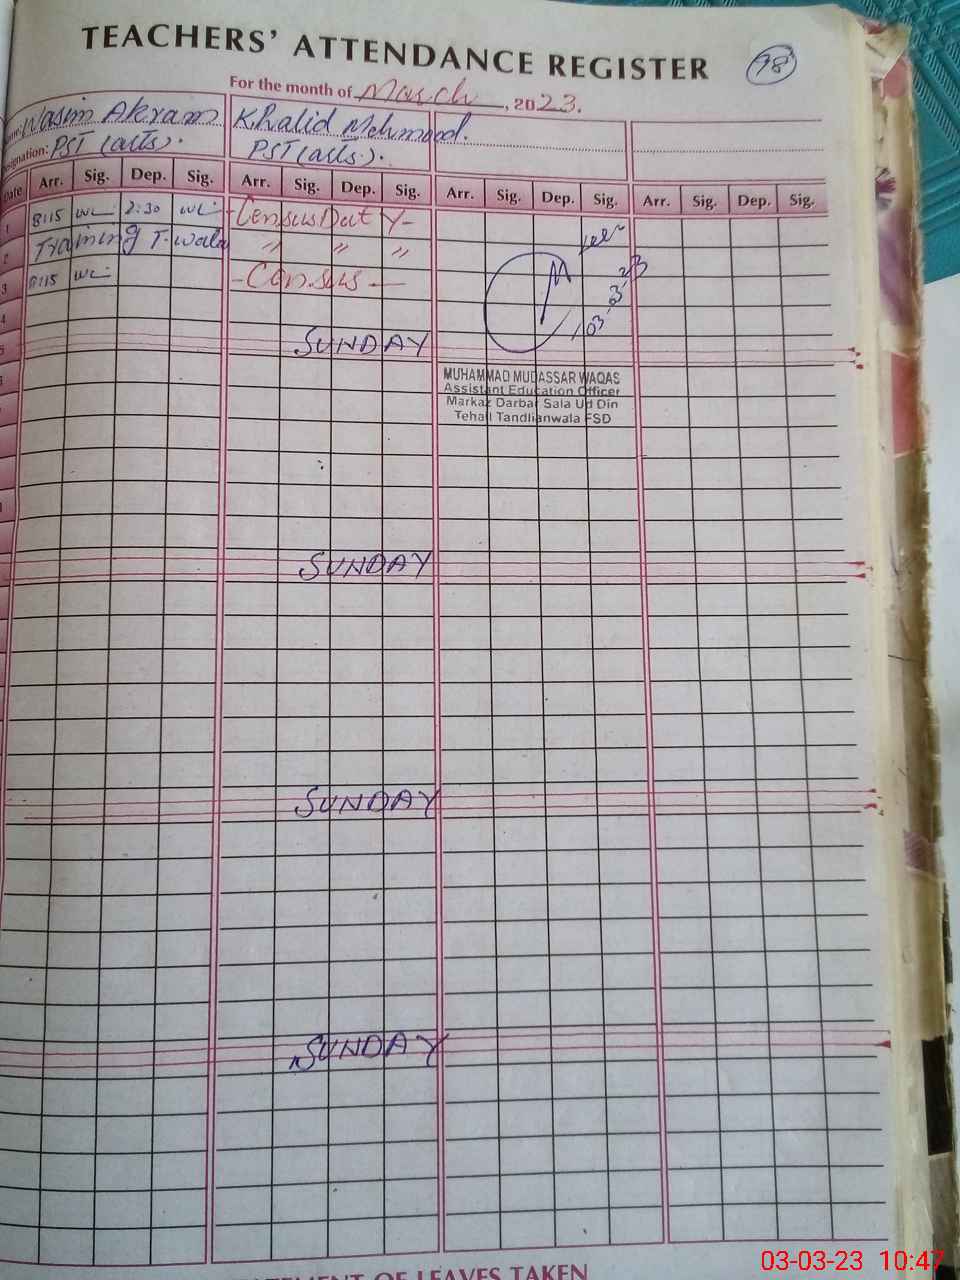 TEACHERS' ATTENDANCE REGISTER
98
For the month of March, 2023.
Name: Wasim Akram Khalid Mehmood.
Designation: PST (arts). PST (arts).
Date Arr. Sig. Dep. Sig. Arr. Sig. Dep. Sig. Arr. Sig. Dep. Sig. Arr. Sig. Dep. Sig.
1 8:15 2:30 - Census Duty -
2 Training T.wala " " "
3 8:15 - Census -
4
03-3-23
5 SUNDAY
MUHAMMAD MUDASSAR WAQAS
Assistant Education Officer
Markaz Darbar Sala Ud Din
Tehsil Tandlianwala FSD
SUNDAY
SUNDAY
SUNDAY
STATEMENT OF LEAVES TAKEN
03-03-23 10:47